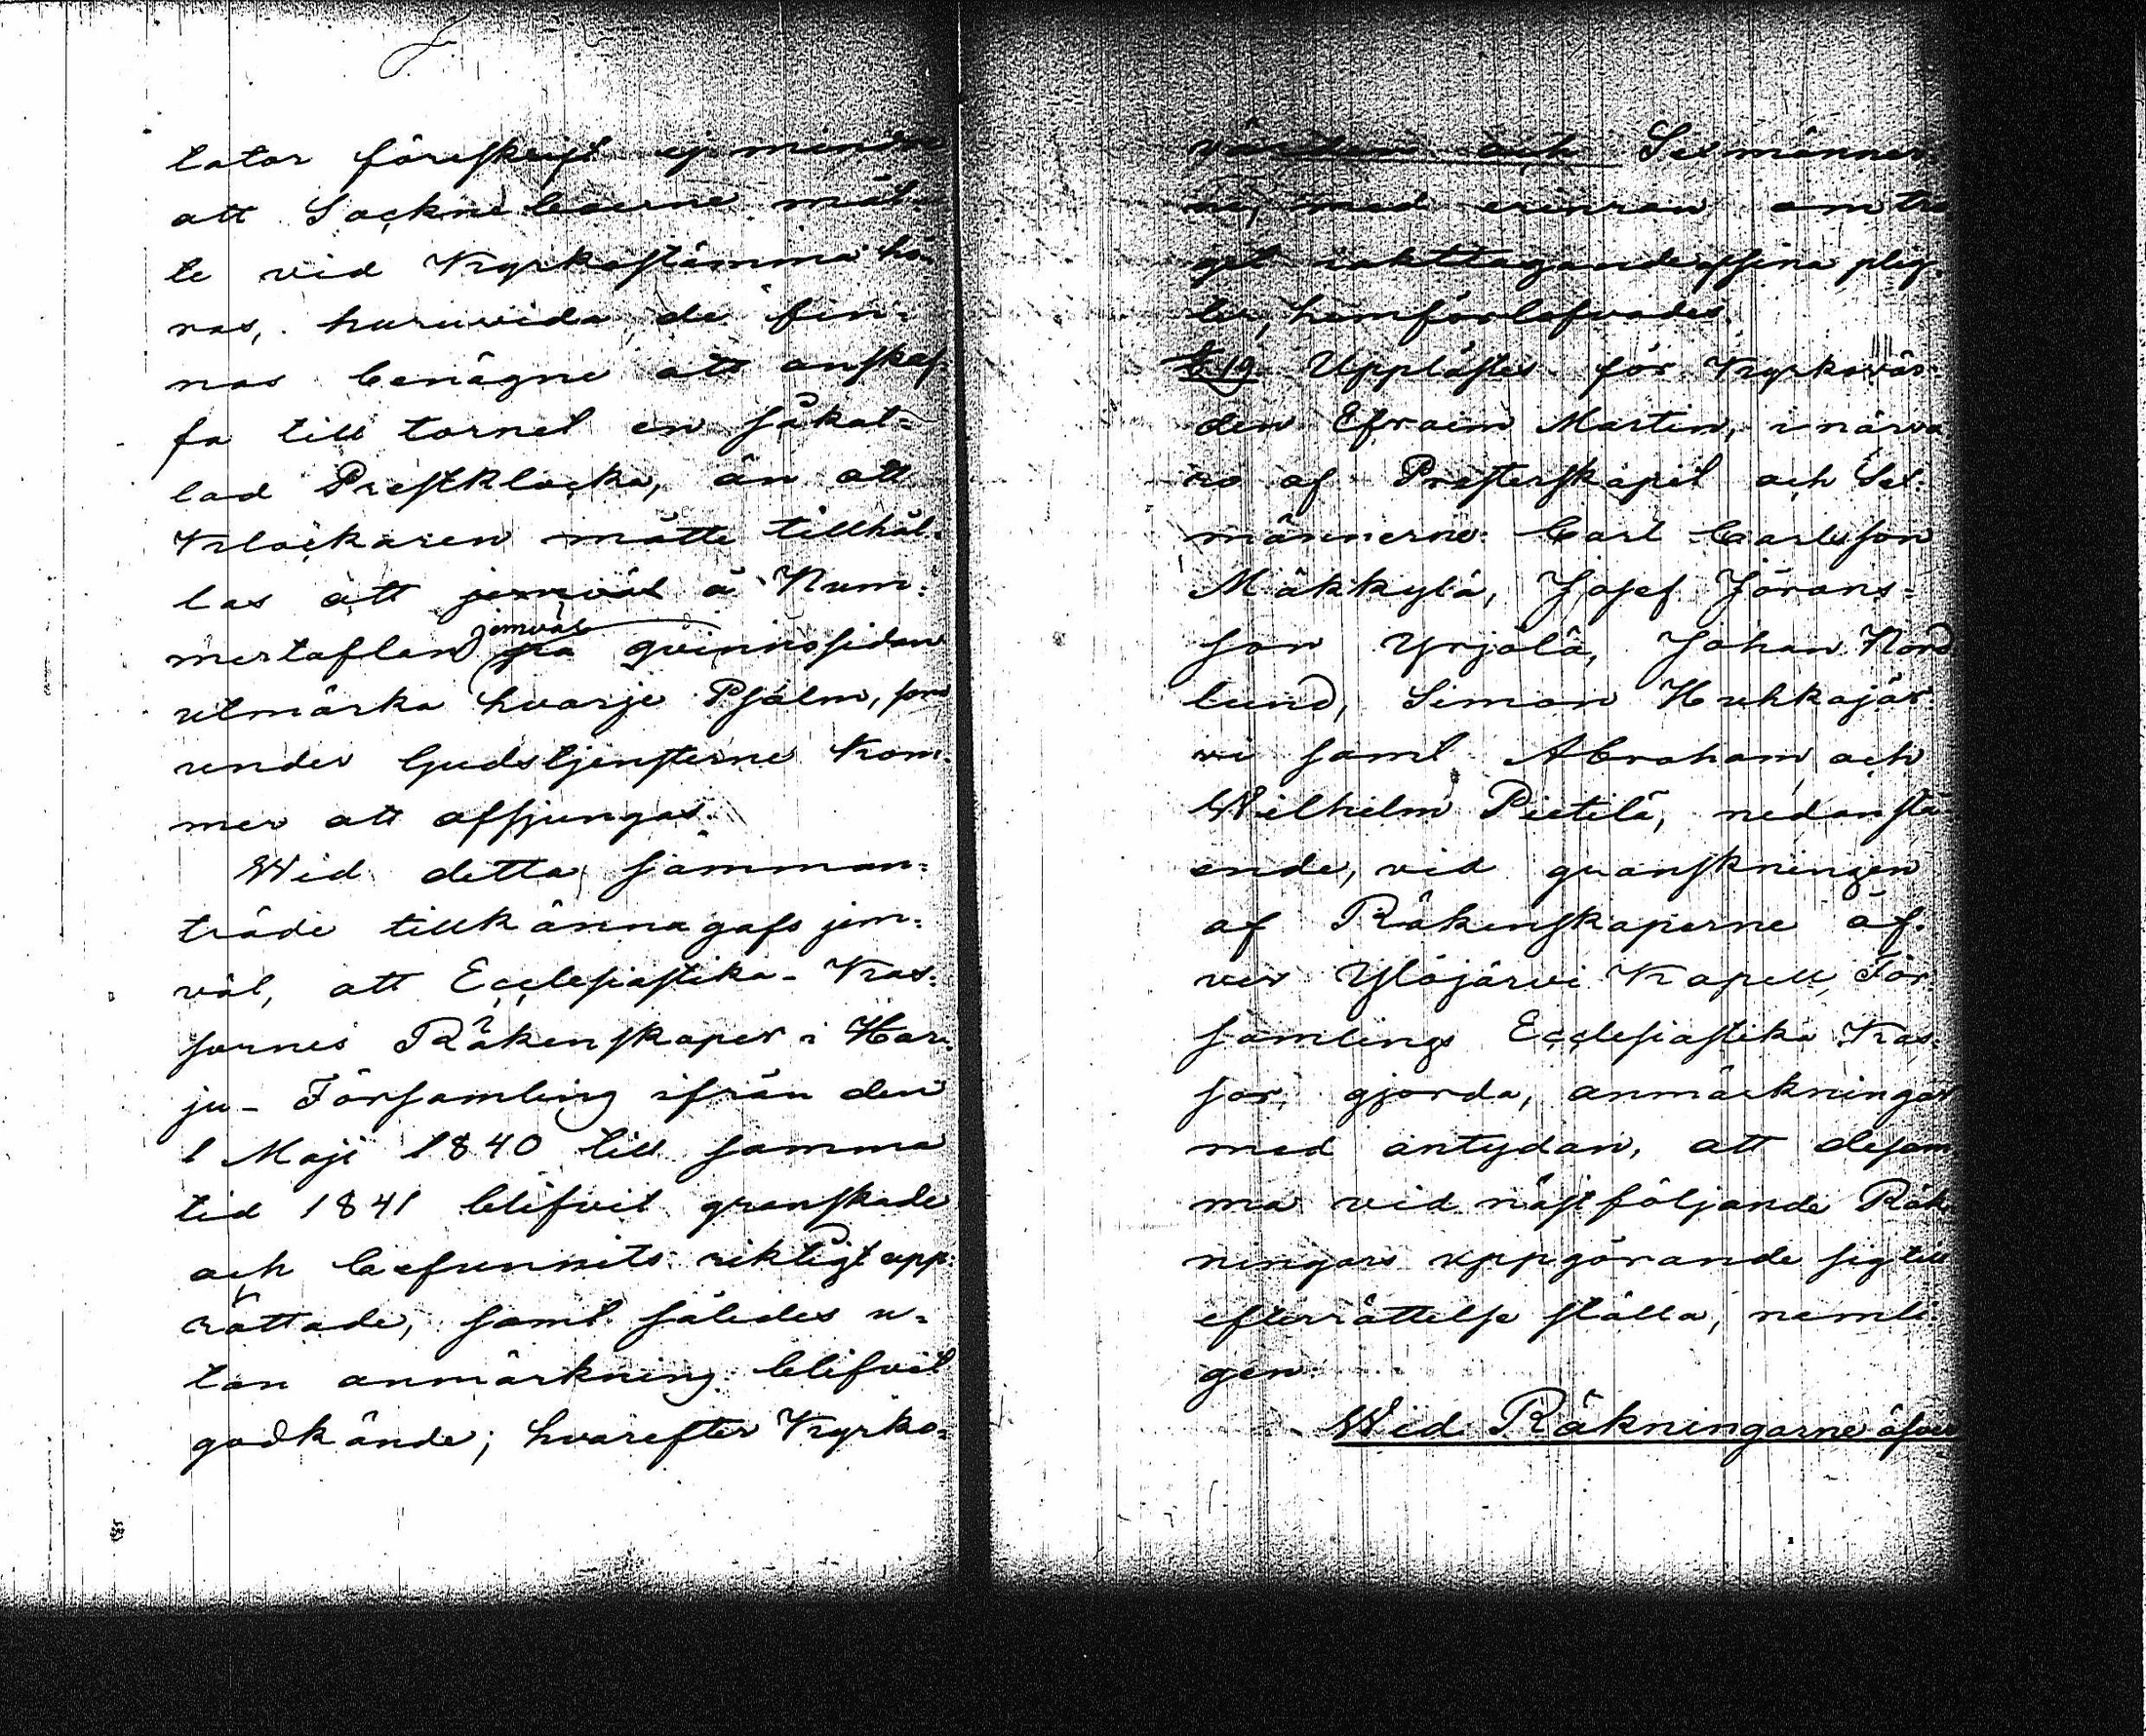 tatar föreskrift ej mindre
att Sockneboerne måt=
te vid Kyrkostämma hö=
ras, huruvida de fin=
nas benägne att anskaf=
fa till tornet en såkal=
lad Prestklocka, än att
Klockaren måtte tillhål=
las att jemväl å Num=
mertaflan jemväl på qvinnosidan
utmärka hvarje Psalm, som
under Gudstjensterne kom=
mer att afsjungas.
Wid detta samman=
träde tillkännagafs jem=
väl, att Ecclesiastika-Kas=
sornes Räkenskaper i Har=
ju-Församling ifrån den
1 Maji 1840 till samma
tid 1841 blifvit granskade
och befunnits riktigt upp=
rättade, samt således u=
tan anmärkning blifvit
godkände; hvarefter Kyrko=
värden och Sexmänner=
ne, med erinran om tro
get iakttagande af sina plig=
ter, hemförlofvades.
§ 19 Upplästes för Kyrkovär=
den Efraim Martin, i närva
ro af Presterskapet och Sex=
männerne Carl Carlsson
Mäkkylä, Josef Jörans=
son Yrjölä, Johan Nord
lund, Simon Huhkajär=
vi samt Abraham och
Wilhelm Pietilä, nedanstå
ende, vid granskningen
af Räkenskaperne öf=
ver Ylöjärvi Kapell För
samlings Ecclesiastika Kas=
sor, gjorda, anmärkningar
med antydan, att desam
ma vid nästföljande Räk
ningars uppgörande sig till
efterrättelse ställa, nemli=
gen:
Wid Räkningarne öfver